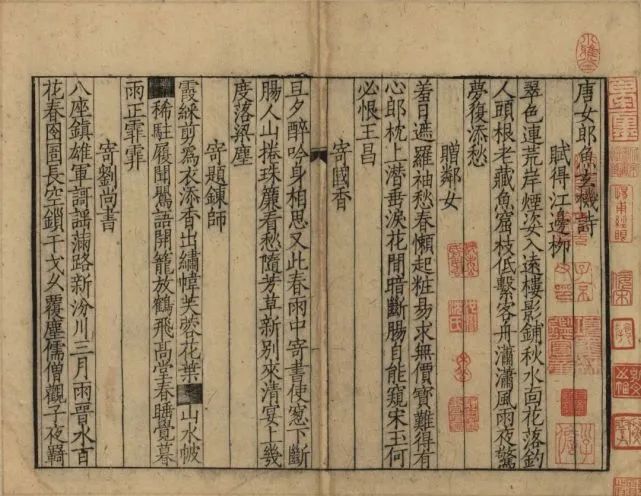 唐女郎魚玄機詩
賦得江邊柳
翠色連荒岸煙姿入遠樓影鋪秋水面花落釣
人頭根老藏魚窟枝低繫客舟瀟瀟風雨夜驚
夢復添愁
贈鄰女
羞日遮羅袖愁春懶起粧易求無價寶難得有
心郎枕上潛垂淚花間暗斷腸自能窺宋玉何
必恨王昌
寄國香
旦夕醉吟身相思又此春雨中寄書使窓下斷
腸人山捲珠簾看愁隨芳草新別來清宴上幾
度落梁塵
寄題鍊師
霞綵剪爲衣添香出繡幃芙蓉花葉山水帔
稀駐履聞鶯語開籠放鶴飛高堂春睡覺暮
雨正霏霏
寄劉尚書
八座鎮雄軍謌謠滿路新汾川三月雨晉水百
花春囹圄長空鎖干戈久覆塵儒僧觀子夜羇